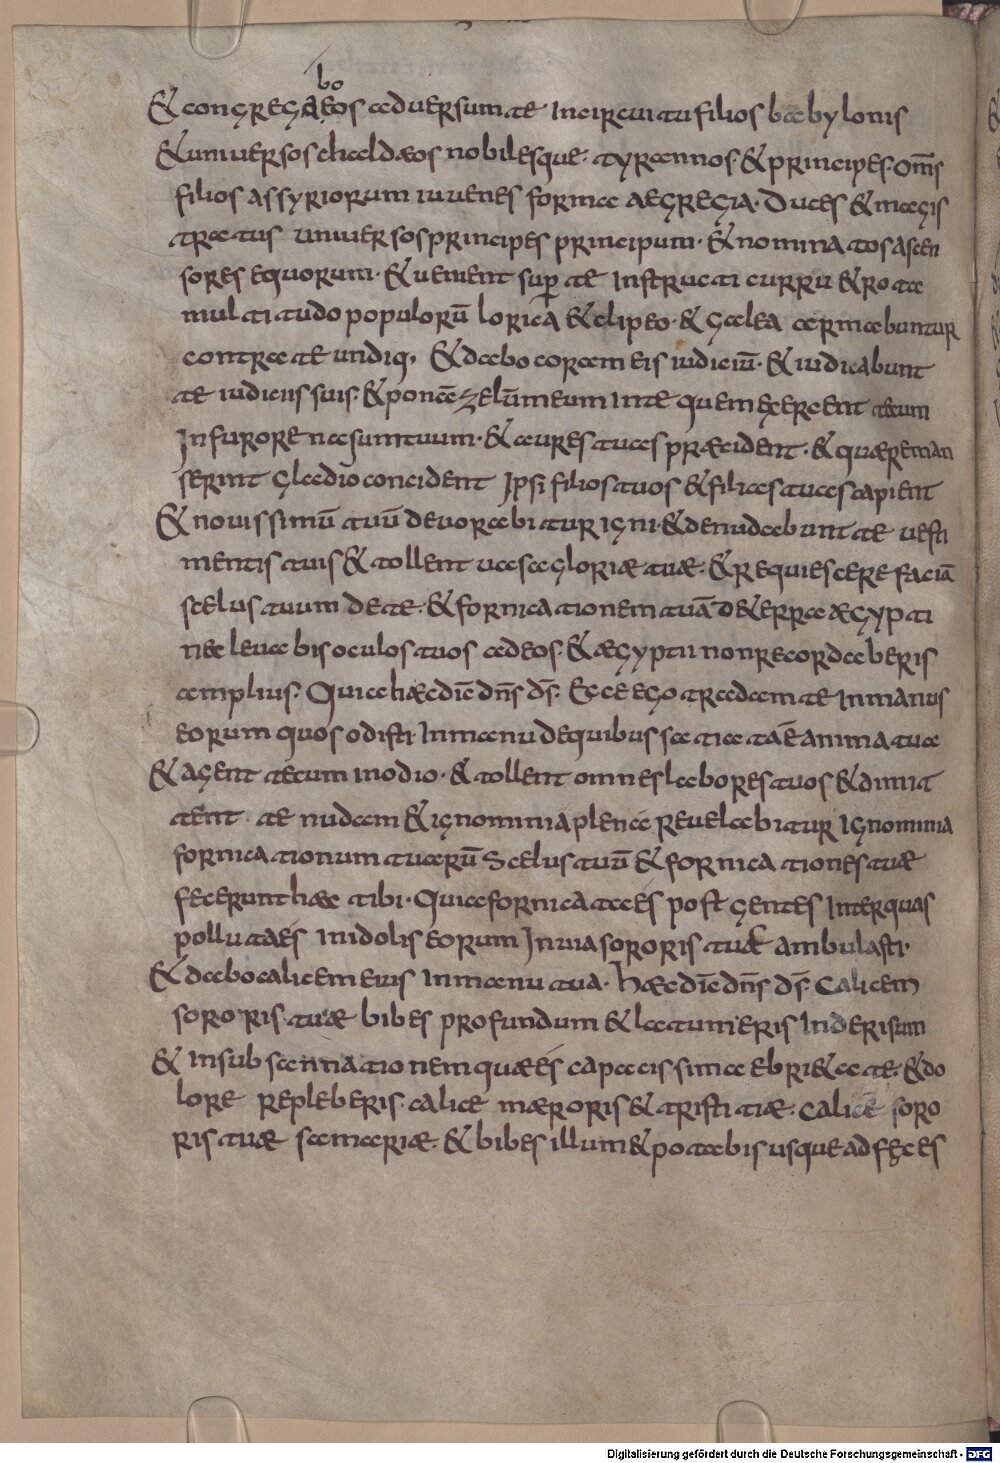 & congregabo eos aduersum te Incircuitu filios babylonis
& uniuersos chaldæos nobilesque· tyrannos· & principes· om̅s
filios assyriorum iuuenes forma aegregia· Duces & magis
tratus uniuersos principes principum· & nominatos ascen
sores equorum· & uenient sup̱ te Instructi curru & rota
multitudo populorū lorica & clipeo· & galea armabuntur
contra te undiq, & dabo coram eis iudiciū· & iudicabunt
te iudiciis suis· & ponā zelūmeum Inte quem exerceant tecum
In furore nasumtuum· & aures tuas præcident· & quæreman
serint gladio concident Ipsi filios tuos & filias tuas capient
& nouissimū tuū deuorabitur igni· & denudabunt te uesti
mentis tuis & tollent uasa gloriæ tuæ· & requiescere faciā
scelus tuum de te· & fornicationem tuā de terra ægypti
nec leuabis oculos tuos ad eos· & ægypti nonrecordaberis
amplius· Quia hæc dic̄ dn̅s ds̅· Ecce ego tradam te Inmanus
eorum quos odisti Inmanu dequibus satiata ē anima tua
& agent tecum inodio· & tollent omnes labores tuos & dimit
tent te nudam & ignominia plena reuelabitur Ignominia
fornicationum tuarū Scelus tuū & fornicationes tuæ
fecerunt hæc tibi· Quia fornicata es post gentes Interquas
polluta es Inidolis eorum In uia sororis tuæ ambulasti·
& dabo calicem eius Inmanu tua· hæc dic̄ dn̅s ds̅· Calicem
sororis tuæ bibes profundum & latum eris Inderisum
& Insubsannationem quæ es capacissima ebri&ate· & do
lore repleberis calice mæroris & tristitiæ· calice soro
ris tuæ samariæ· & bibes illum & potabis usque ad fæces
Digitalisierung gefördert durch die Deutsche Forschungsgemeinschaft - DFG